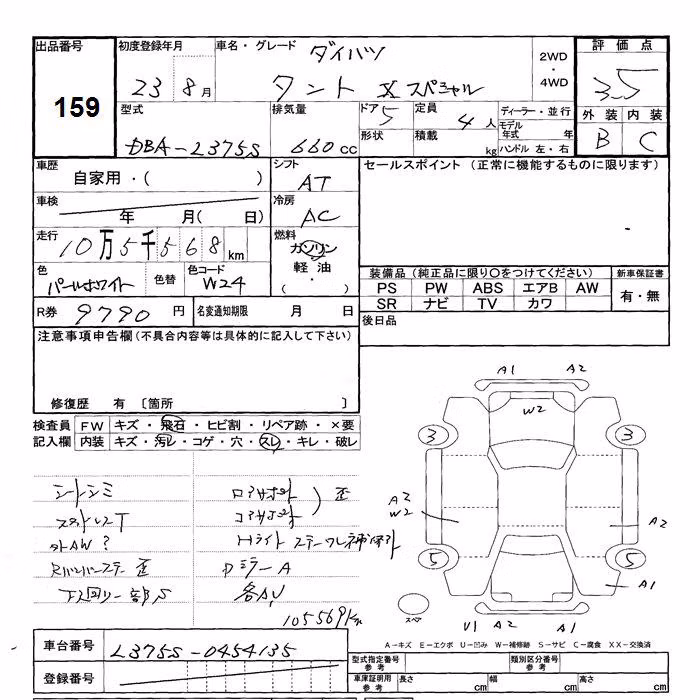 出品番号
159
初度登録年月
23 8月
車名・グレード
ダイハツ
タント Xスペシャル
2WD
・
4WD
評価点
3.5
外装 内装
B C
型式
DBA-L375S
排気量
660cc
ドア 5
定員 4人
形状
積載 kg
ディーラー・並行
モデル年式 年
ハンドル 左・右
車歴
自家用・( )
シフト
AT
セールスポイント (正常に機能するものに限ります)
車検
年 月( 日)
冷房
AC
走行
10万5千568km
燃料
ガソリン
軽油
( ・ )
色
パールホワイト
色替
色コード
W24
装備品(純正品に限り○をつけてください)
新車保証書
PS PW ABS エアB AW
SR ナビ TV カワ
有・無
R券 9790円
名変通知期限 月 日
後日品
注意事項申告欄(不具合内容等は具体的に記入して下さい)
修復歴 有 〔箇所 〕
検査員記入欄
FW キズ・飛石・ヒビ割・リペア跡・×要
内装 キズ・汚レ・コゲ・穴・スレ・キレ・破レ
シートシミ
スタッドレスT
社外AW?
Rバンパーステー歪
下廻り一部S
ロアサポート
コアサポート
歪
Hライトステーワレ
ドミラーA
各AU
105569km
A1 A2
W2
3 3
A2
W2
A2
5 5
A1
スペア
U1 A2 A1
A-キズ E-エクボ U-凹み W-補修跡 S-サビ C-腐食 XX-交換済
車台番号
L375S-0454135
登録番号
型式指定番号
参考
類別区分番号
参考
車庫証明用
参考
長さ cm
幅 cm
高さ cm